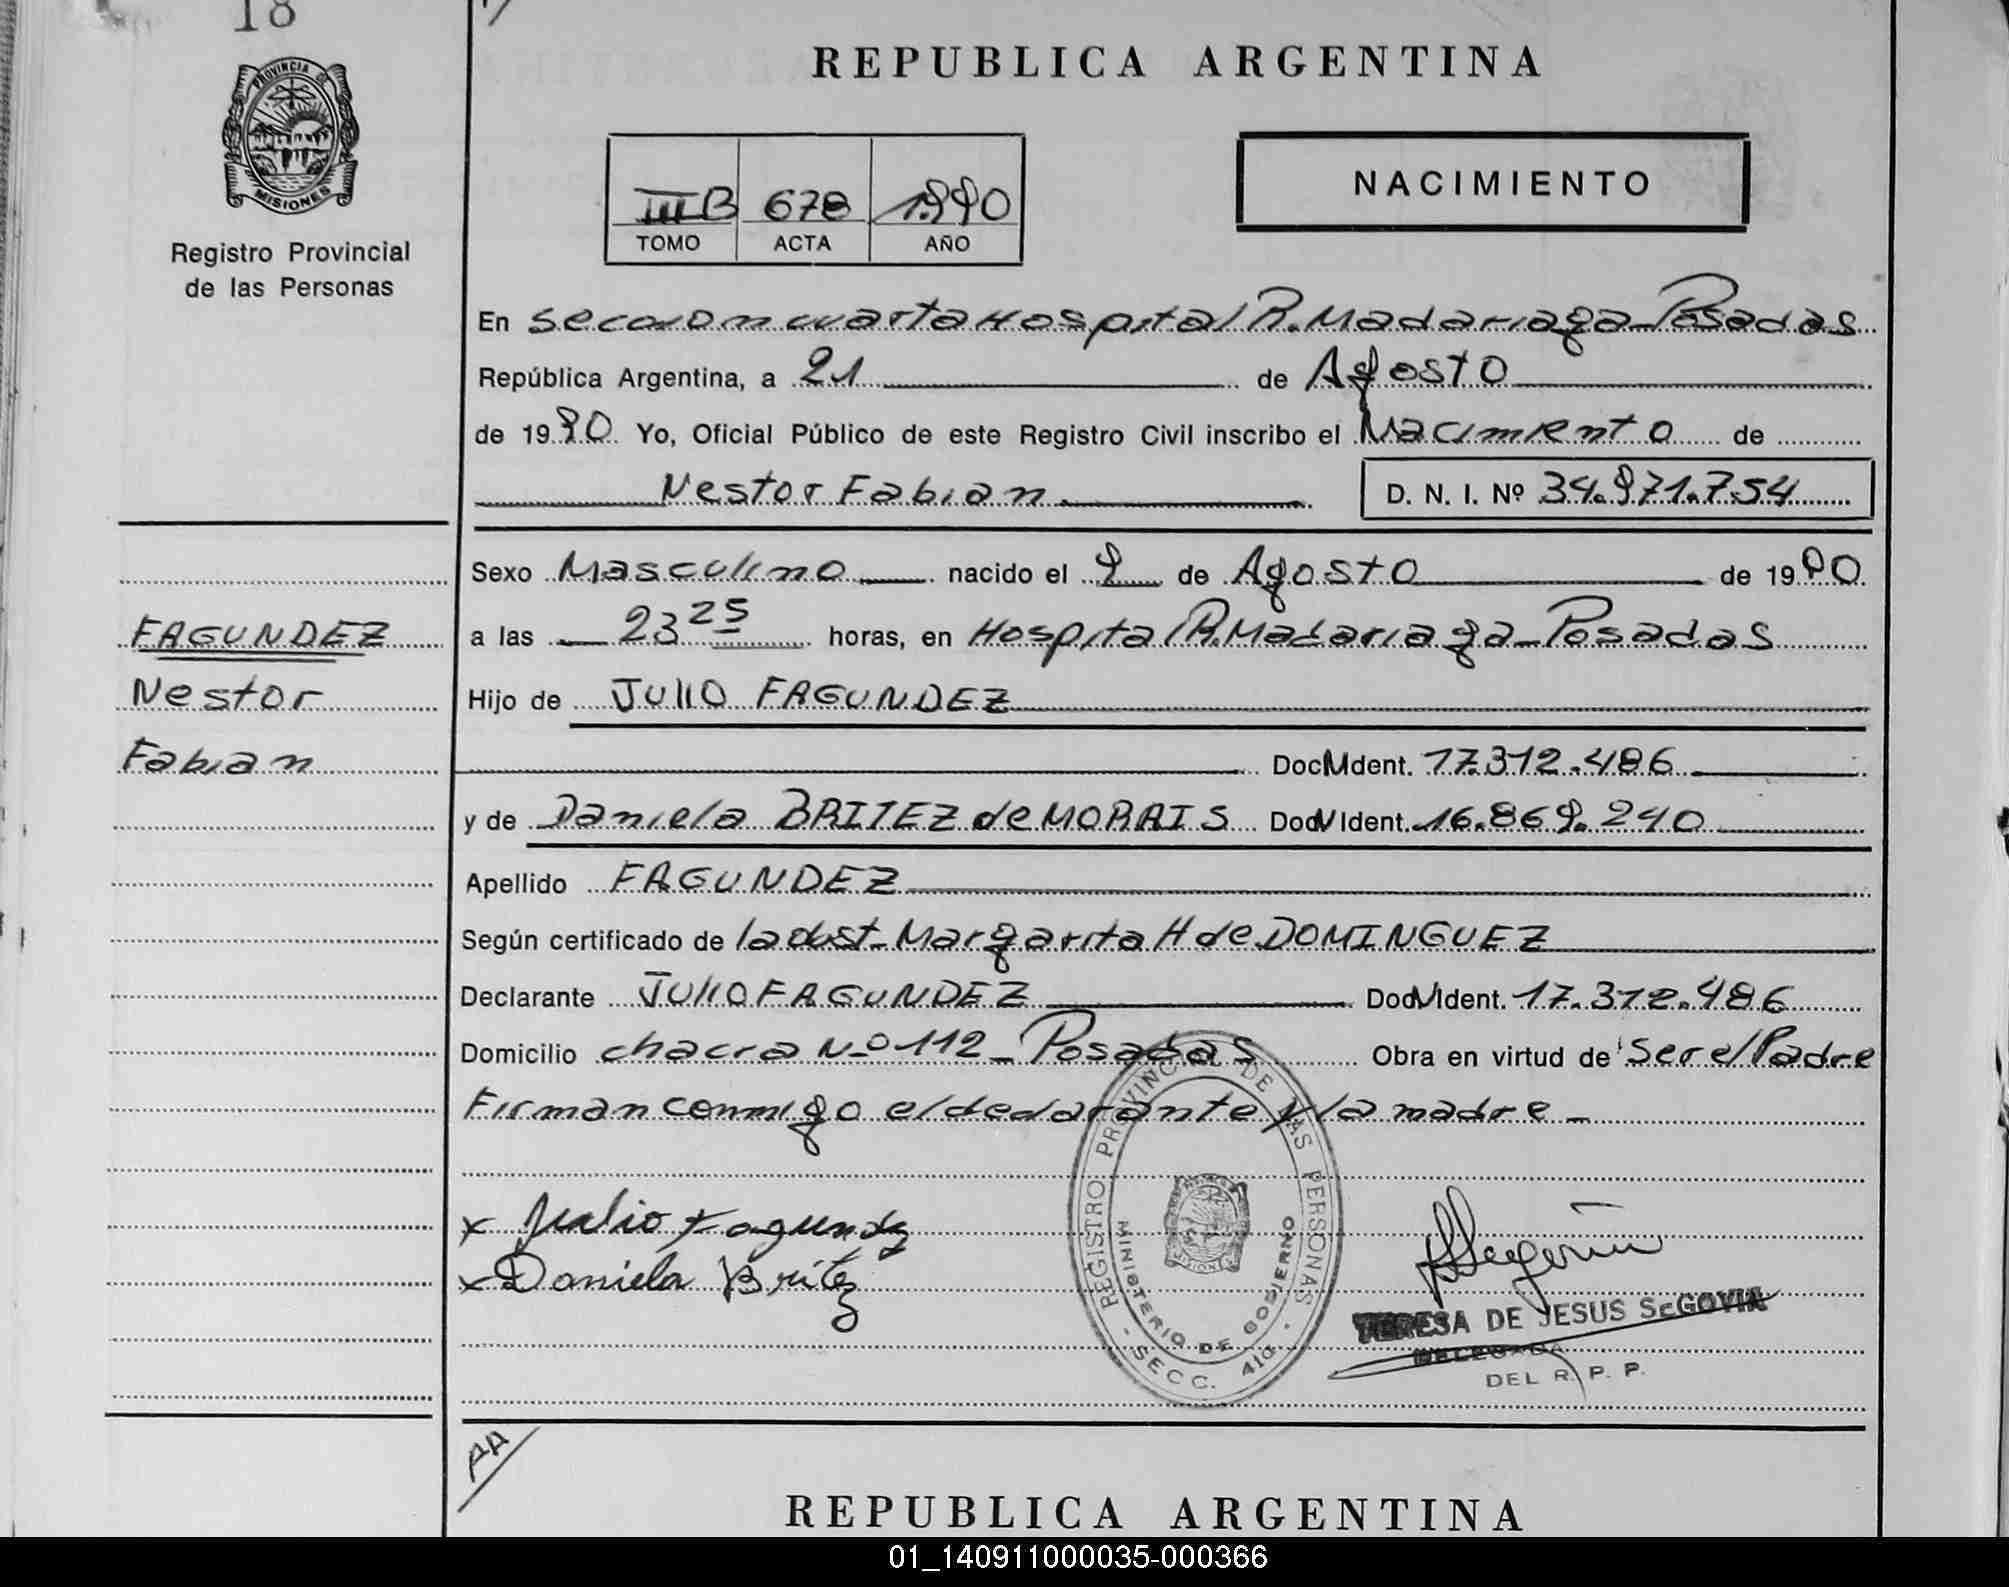 18
PROVINCIA DE
MISIONES
Registro Provincial
de las Personas
REPUBLICA ARGENTINA
III B 678 1990
TOMO ACTA AÑO
NACIMIENTO
En Seccion cuarta Hospital R. Madariaga - Posadas
República Argentina, a 21 de Agosto
de 1990 Yo, Oficial Público de este Registro Civil inscribo el Nacimiento de
Nestor Fabian D. N. I. Nº 34.971.754
FAGUNDEZ
Nestor
Fabian
Sexo Masculino nacido el 9 de Agosto de 1990
a las 23 25 horas, en Hospital R. Madariaga - Posadas
Hijo de Julio FAGUNDEZ
Doc. Ident. 17.312.486
y de Daniela BRITEZ de MORAIS Doc. Ident. 16.869.240
Apellido FAGUNDEZ
Según certificado de la obst. Margarita H de DOMINGUEZ
Declarante Julio FAGUNDEZ Doc. Ident. 17.312.486
Domicilio chacra Nº 112 - Posadas Obra en virtud de Ser el Padre
Firman conmigo el declarante y la madre -
x Julio Fagundez
x Daniela Britez
REGISTRO PROVINCIAL DE LAS PERSONAS
MINISTERIO DE GOBIERNO
- SECC. 4ta -
TERESA DE JESUS SEGOVIA
DELEGADA
DEL R. P. P.
AA
REPUBLICA ARGENTINA
01_140911000035-000366